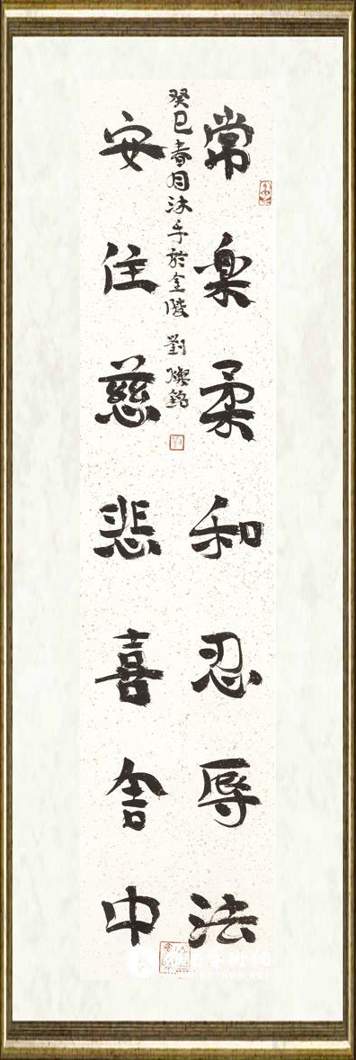 常樂柔和忍辱法
安住慈悲喜舍中
癸巳春月沐手於金陵 劉燦銘